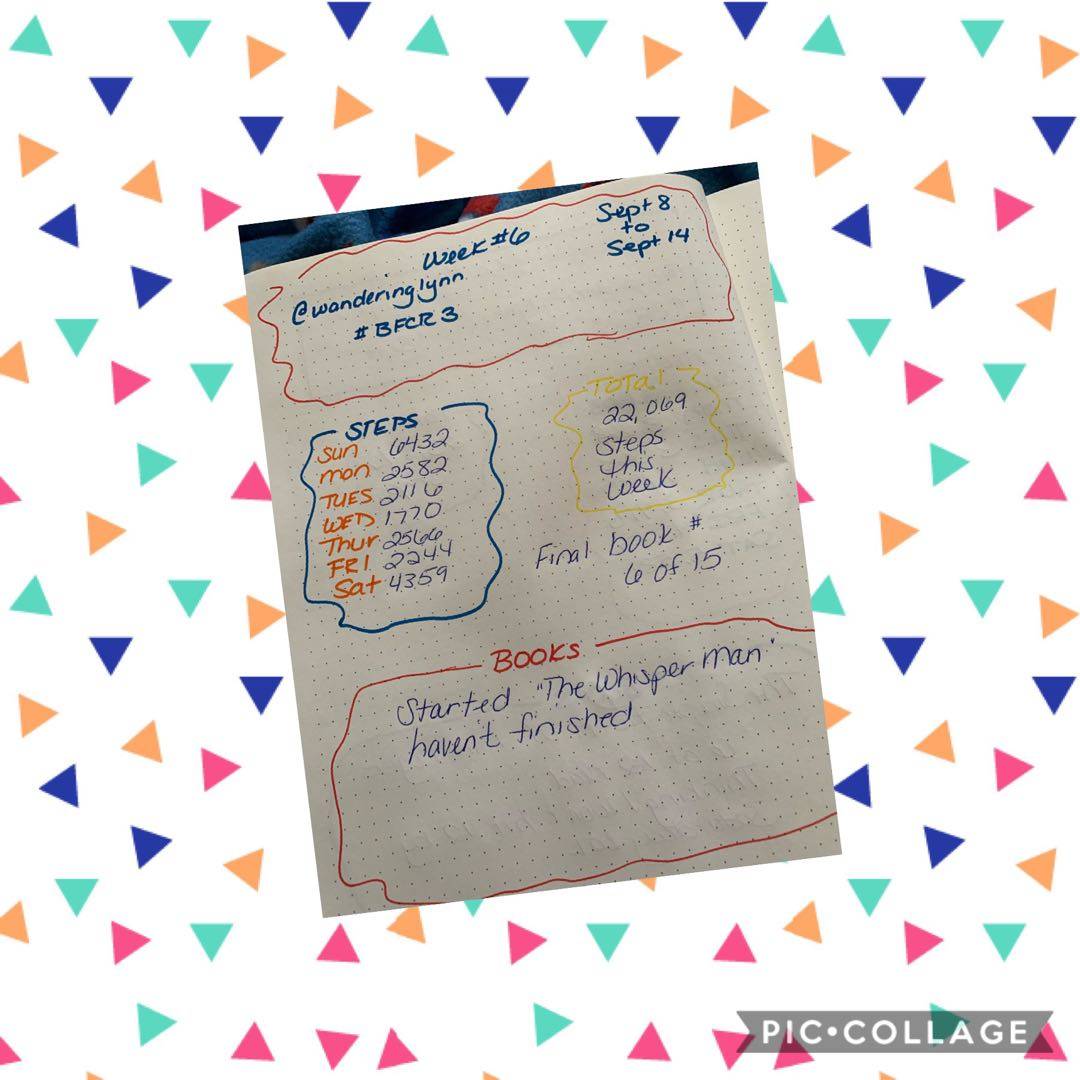 Week #6
Sept 8
to
Sept 14
@wanderinglynn
# BFCR 3
STEPS
Sun 6432
mon 2582
TUES 2116
WED 1770
Thur 2566
FRI 2244
Sat 4359
TOTAL
22,069
Steps
this
week
Final book #
6 of 15
BOOKS
Started "The Whisper Man"
haven't finished
PIC•COLLAGE